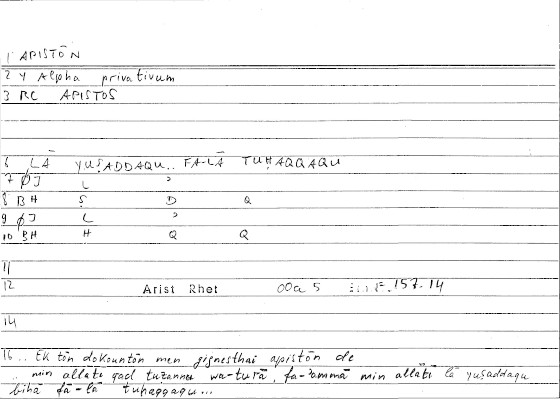 1 APISTŌN
2 Y Alpha privativum
3 RC APISTOS
6 LĀ YUṢADDAQU.. FA-LĀ TUḤAQQAQU
7 ØJ L ʾ
8 BH Ṣ D Q
9 ØJ L ʾ
10 BH H Q Q
11
12 Arist Rhet 00a 5 157.14
14
16 .. EK tōn dokountōn men gignesthai apistōn de
.. min allātī qad tuẓannu wa-turā, fa-ʾammā min allātī lā yuṣaddaqu
bihā fā-lā tuḥaqqaqu...